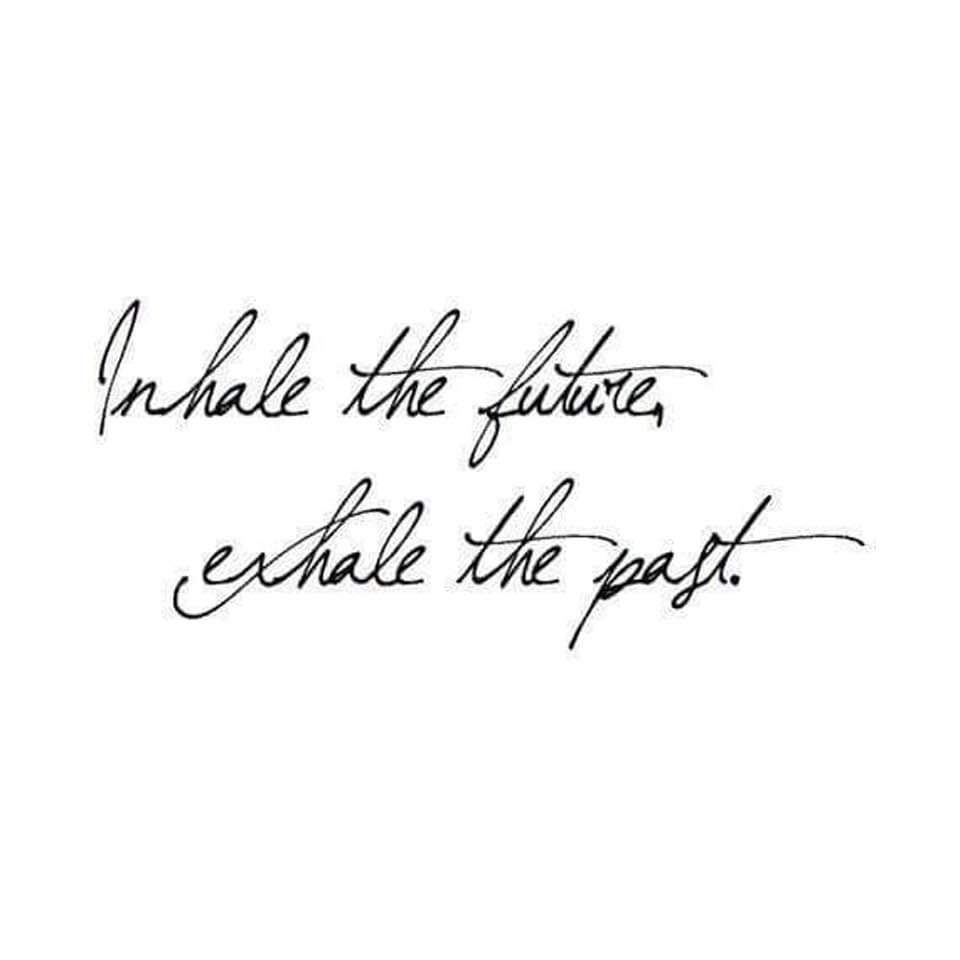 Inhale the future,
exhale the past.